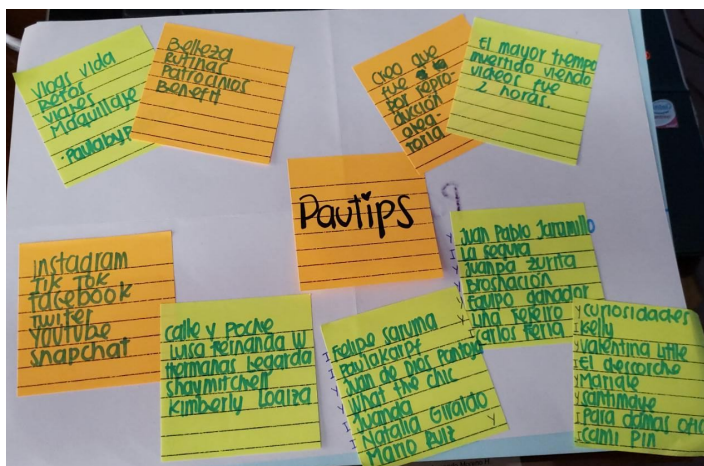 Vlogs vida
Retos
Viajes
Maquillaje
·Paulabyp
Belleza
Rutina
Patrocinios
Benefit
Creo que
fue a la
por repro-
ducción
alea-
toria
El mayor tiempo
invertido viendo
videos fue
2 horas.
Pautips
Instagram
Tik Tok
Facebook
Twiter
Youtube
Snapchat
Calle y Poche
Luisa Fernanda W
Hermanas Legarda
Shaymitchell
Kimberly Loaiza
I Felipe Saruma
I Paulakarpf
Y Juan de Dios Pantoja
Y What the chic
I Juanda
I Natalia Giraldo
Mario Ruiz Y
Y Juan Pablo Jaramillo
I La segura
Y Juanpa Zurita
Y Broshación
Y Equipo ganador
Y Lina Tejeiro
I Carlos Feria
Y Curiosidades
Kelly
Y Valentina Litle
Y El descorche
Y Mariale
Y Santimaye
I Para damas
I Cami Pin